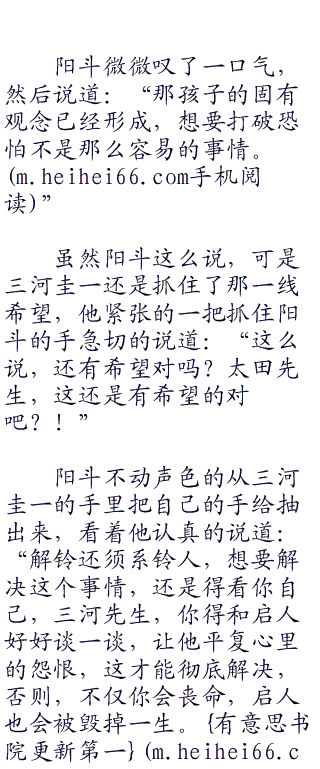 阳斗微微叹了一口气，
然后说道：“那孩子的固有
观念已经形成，想要打破恐
怕不是那么容易的事情。
(m.heihei66.com手机阅
读)”
虽然阳斗这么说，可是
三河圭一还是抓住了那一线
希望，他紧张的一把抓住阳
斗的手急切的说道：“这么
说，还有希望对吗？太田先
生，这还是有希望的对
吧？！”
阳斗不动声色的从三河
圭一的手里把自己的手给抽
出来，看着他认真的说道：
“解铃还须系铃人，想要解
决这个事情，还是得看你自
己，三河先生，你得和启人
好好谈一谈，让他平复心里
的怨恨，这才能彻底解决，
否则，不仅你会丧命，启人
也会被毁掉一生。{有意思书
院更新第一}(m.heihei66.c